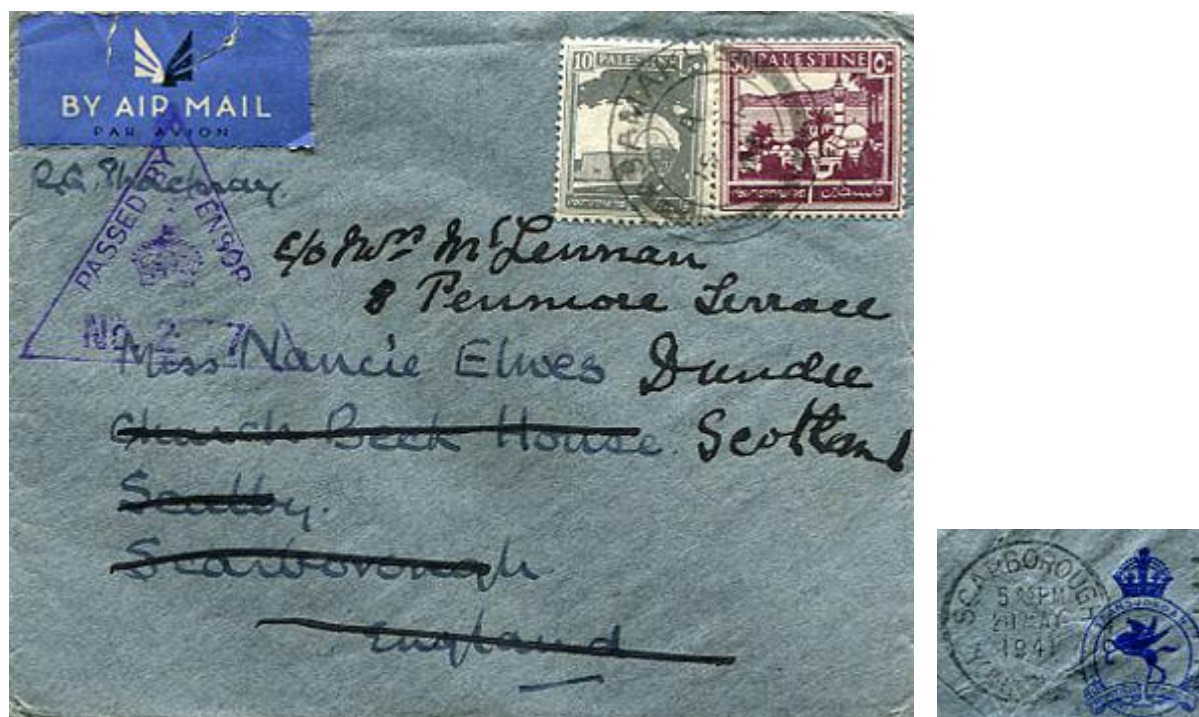 BY AIR MAIL
PAR AVION
10 PALESTINE
50 PALESTINE ٥٠
فلسطين
PASSED BY CENSOR
No 2 7
c/o Mrs McLennan
8 Penmore Terrace
Miss Nancie Elwes Dundee
Church Beck House. Scotland
Scalby.
Scarborough
England
SCARBOROUGH
PM
MAY
1941
TRANSJORDAN